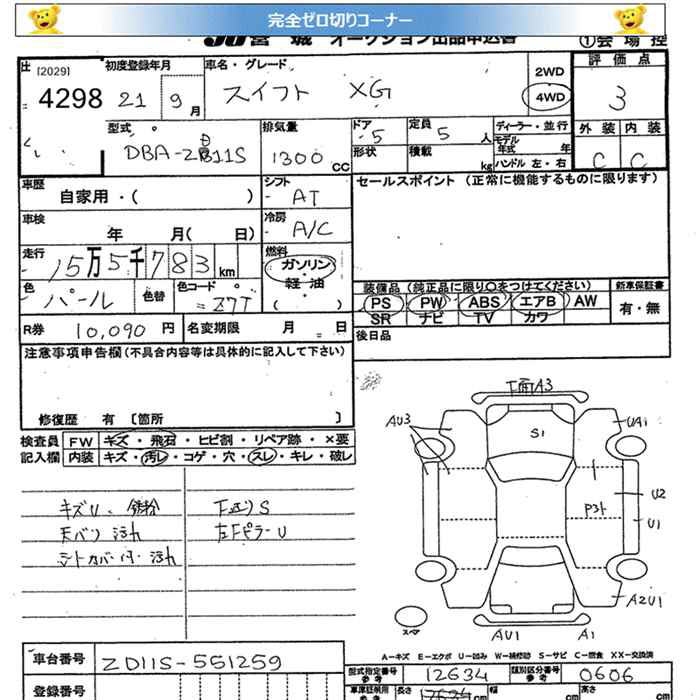 完全ゼロ切りコーナー
JU 宮 城 オークション出品申込書 ①会 場 控
出 [2029] 初度登録年月 車名・グレード 2WD 評 価 点
4298 21 9月 スイフト XG 4WD 3
型式 排気量 ドア 定員 ディーラー・並行 外 装 内 装
DBA-ZD11S 1300 CC 5 5 人 モデル年式 年 C C
形状 積載 kg ハンドル 左・右
車歴 シフト セールスポイント (正常に機能するものに限ります)
自家用・( ) AT
車検 冷房
年 月( 日) A/C
走行 燃料
15万5千783 km ガソリン
軽 油
( )
色 色替 色コード 装備品(純正品に限り○をつけてください) 新車保証書
パール Z7T PS PW ABS エアB AW 有・無
SR ナビ TV カワ
R券 10,090 円 名変期限 月 日 後日品
注意事項申告欄(不具合内容等は具体的に記入して下さい)
修復歴 有 〔箇所 〕
検査員 FW キズ・飛石・ヒビ割・リペア跡・×要
記入欄 内装 キズ・汚レ・コゲ・穴・スレ・キレ・破レ
下廻りS
天バリ 汚れ 左Fピラー U
シートカバー・内・汚れ
下面A3
AU3 S1 UA1
U2
U1
A2U1
スペア AU1 A1
A-キズ E-エクボ U-凹み W-補修跡 S-サビ C-腐食 XX-交換済
車台番号 ZD11S-551259
型式指定番号 参考 12634 類別区分番号 参考 0606
登録番号 長さ cm 幅 cm 高さ cm